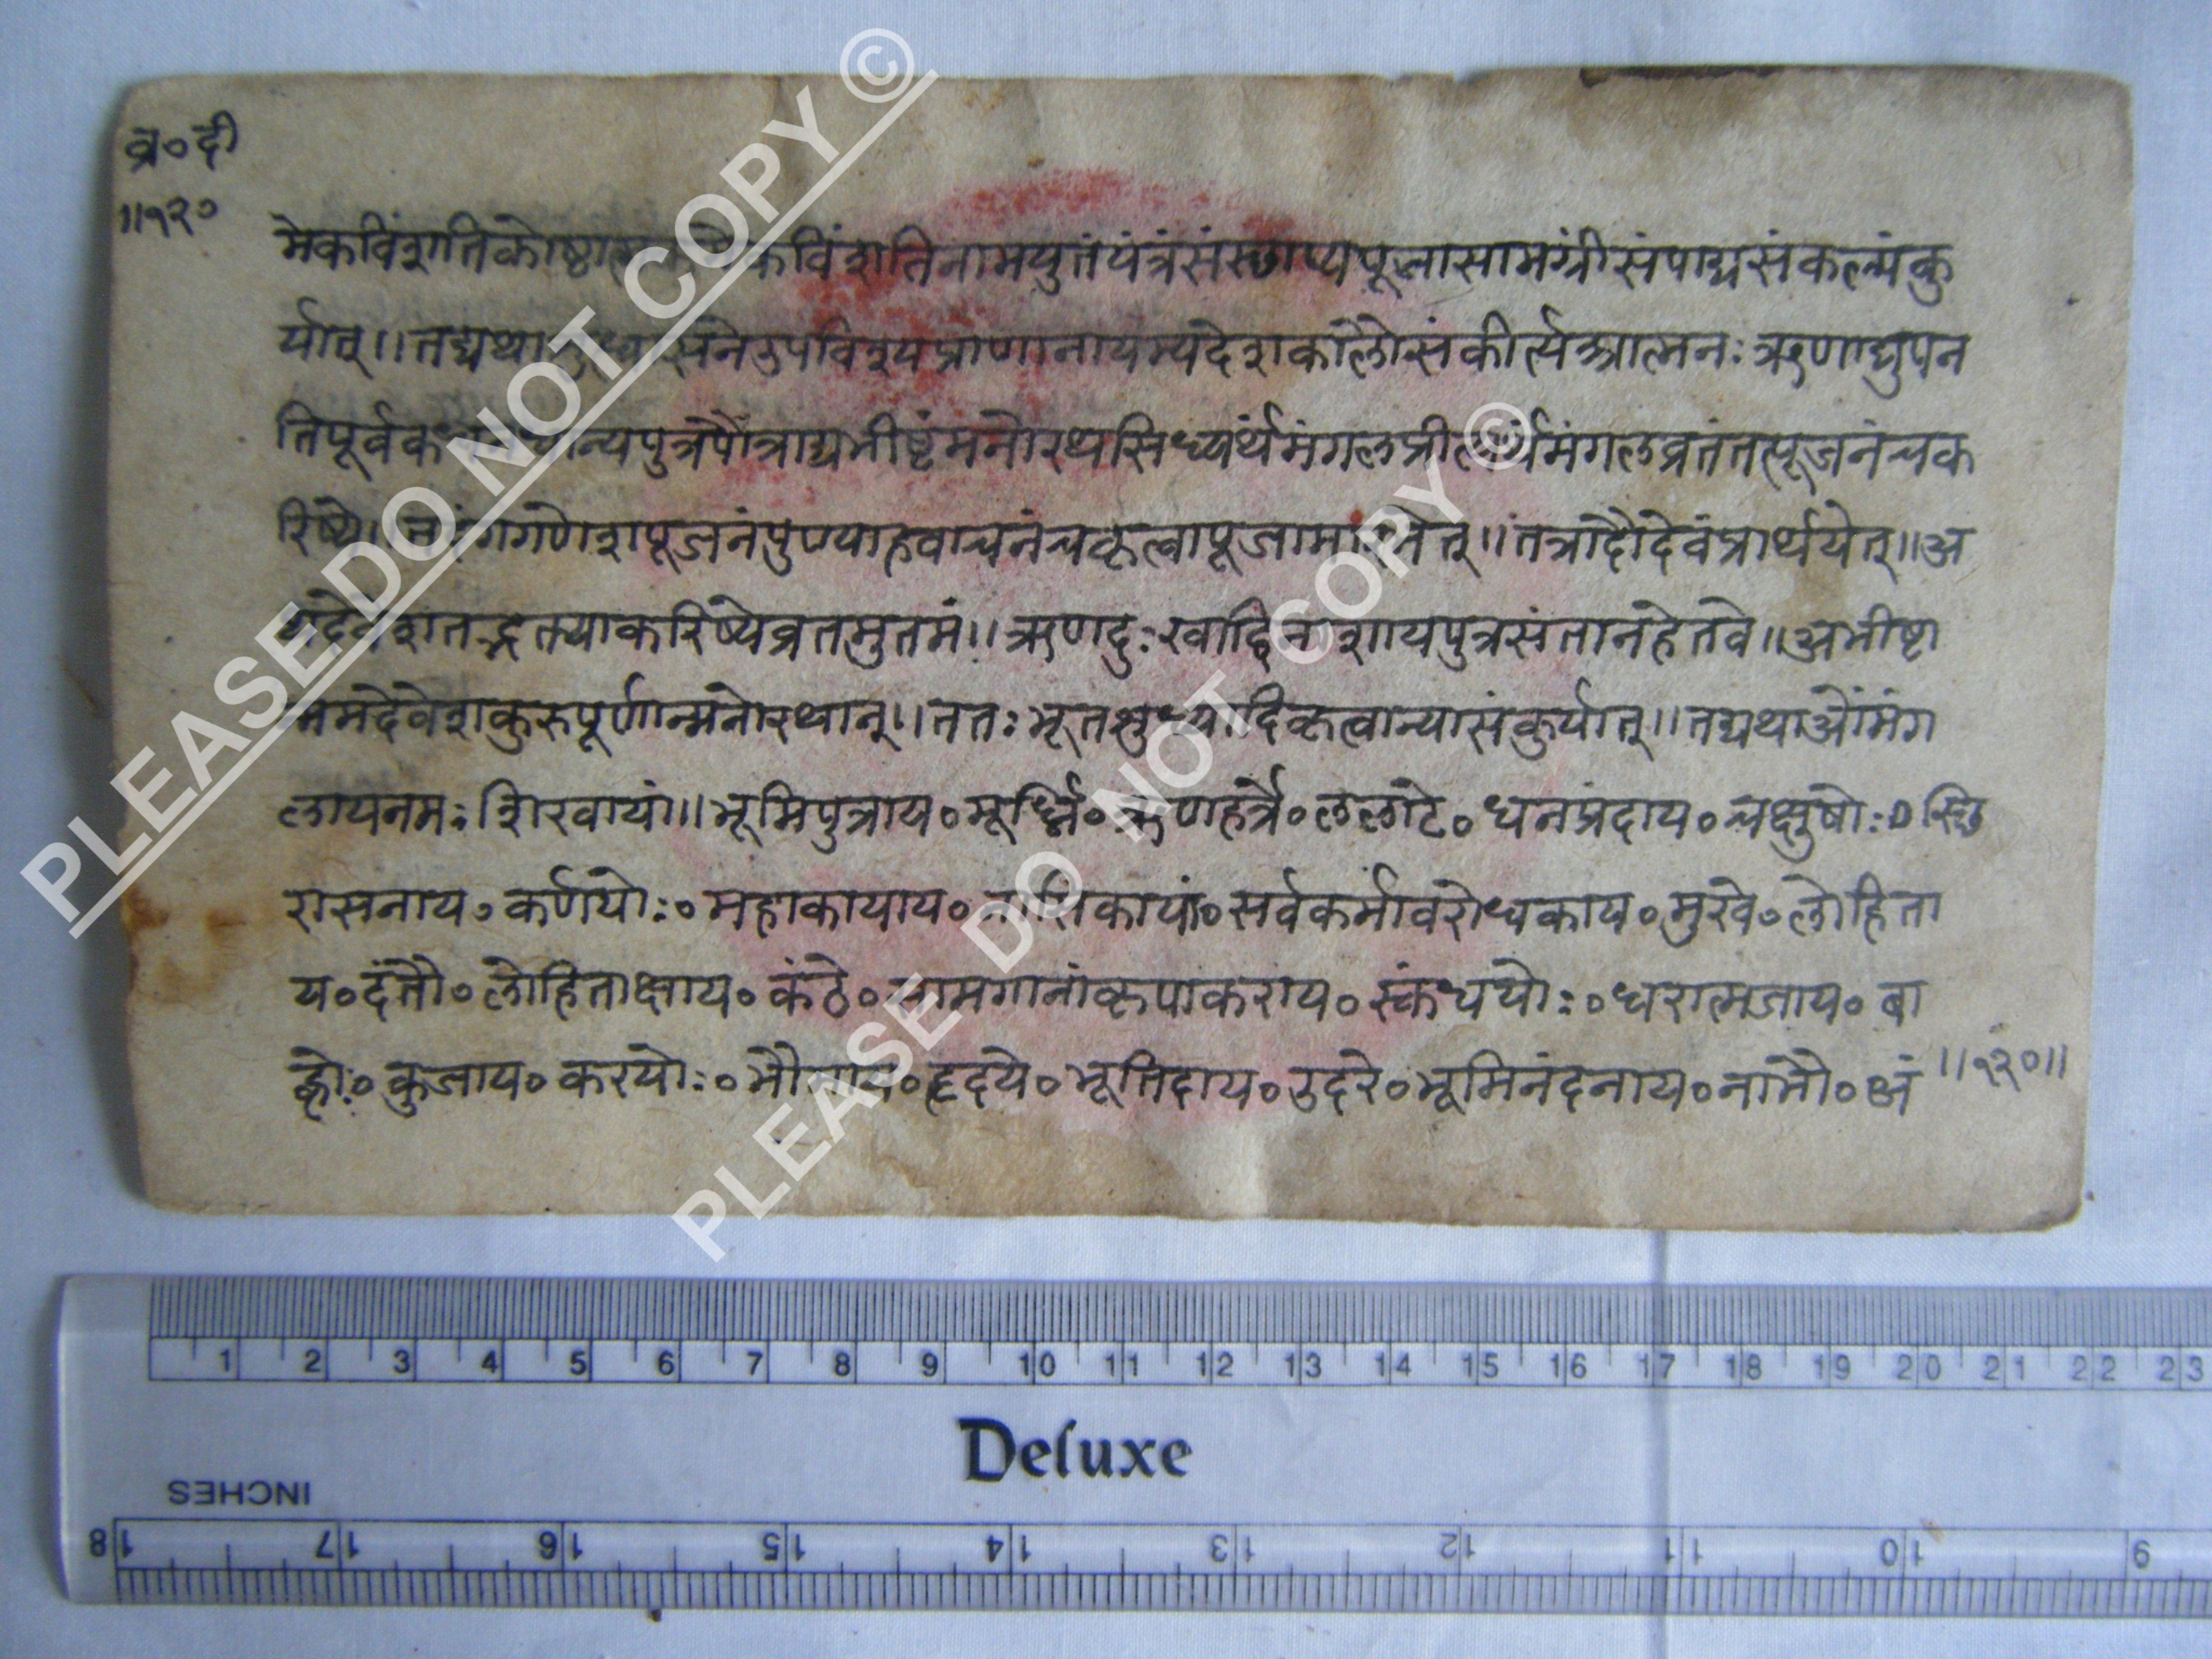 व्र०दी
॥१२०
मेकविंशतिकोष्ठात्म कविंशतिनामयुतंयंत्रंसंस्छाप्यपूजासामग्रींसंपाद्यसंकल्पंकु
र्यात्॥तद्यथा सनेउपविश्यप्राणानायम्यदेशकालौसंकीर्त्यआत्मनःऋणाद्युपन
तिपूर्वक धान्यपुत्रपौत्राद्यभीष्टंमनोरथसिध्यर्थंमंगलप्रीत्यर्थंमंगलव्रतंतत्पूजनंचक
रिष्ये॥ गणेशपूजनंपुण्याहवाचनंचकृत्वापूजामारभेत्॥तत्रादौदेवंप्रार्थयेत्॥अ
द्यदेवेशतद्भक्त्याकरिष्येव्रतमुतमं॥ऋणदुःखादिनाशायपुत्रसंतानहेतवे॥अभीष्टा
ममदेवेशकुरुपूर्णान्मनोरथान्॥ततःभूतशुध्यादिकृत्वान्यासंकुर्यात्॥तद्यथाओंमंग
लायनमःशिखायां॥भूमिपुत्राय०मूर्ध्नि०ऋणहर्त्रे०ललाटे०धनप्रदाय०चक्षुषोः०स्छि
रासनाय०कर्णयोः०महाकायाय०नासिकायां०सर्वकर्मावरोधकाय०मुखे०लोहिता
य०दंतौ०लोहिताक्षाय०कंठे०सामगानांकृपाकराय०स्कंधयोः०धरात्मजाय०बा
ह्वोः०कुजाय०करयोः०भौमाय०हृदये०भूतिदाय०उदरे०भूमिनंदनाय०नाभौ०अं
॥१२०॥
PLEASE DO NOT COPY ©
PLEASE DO NOT COPY ©
1 2 3 4 5 6 7 8 9 10 11 12 13 14 15 16 17 18 19 20 21 22 23
Deluxe
INCHES
18 17 16 15 14 13 12 11 10 9